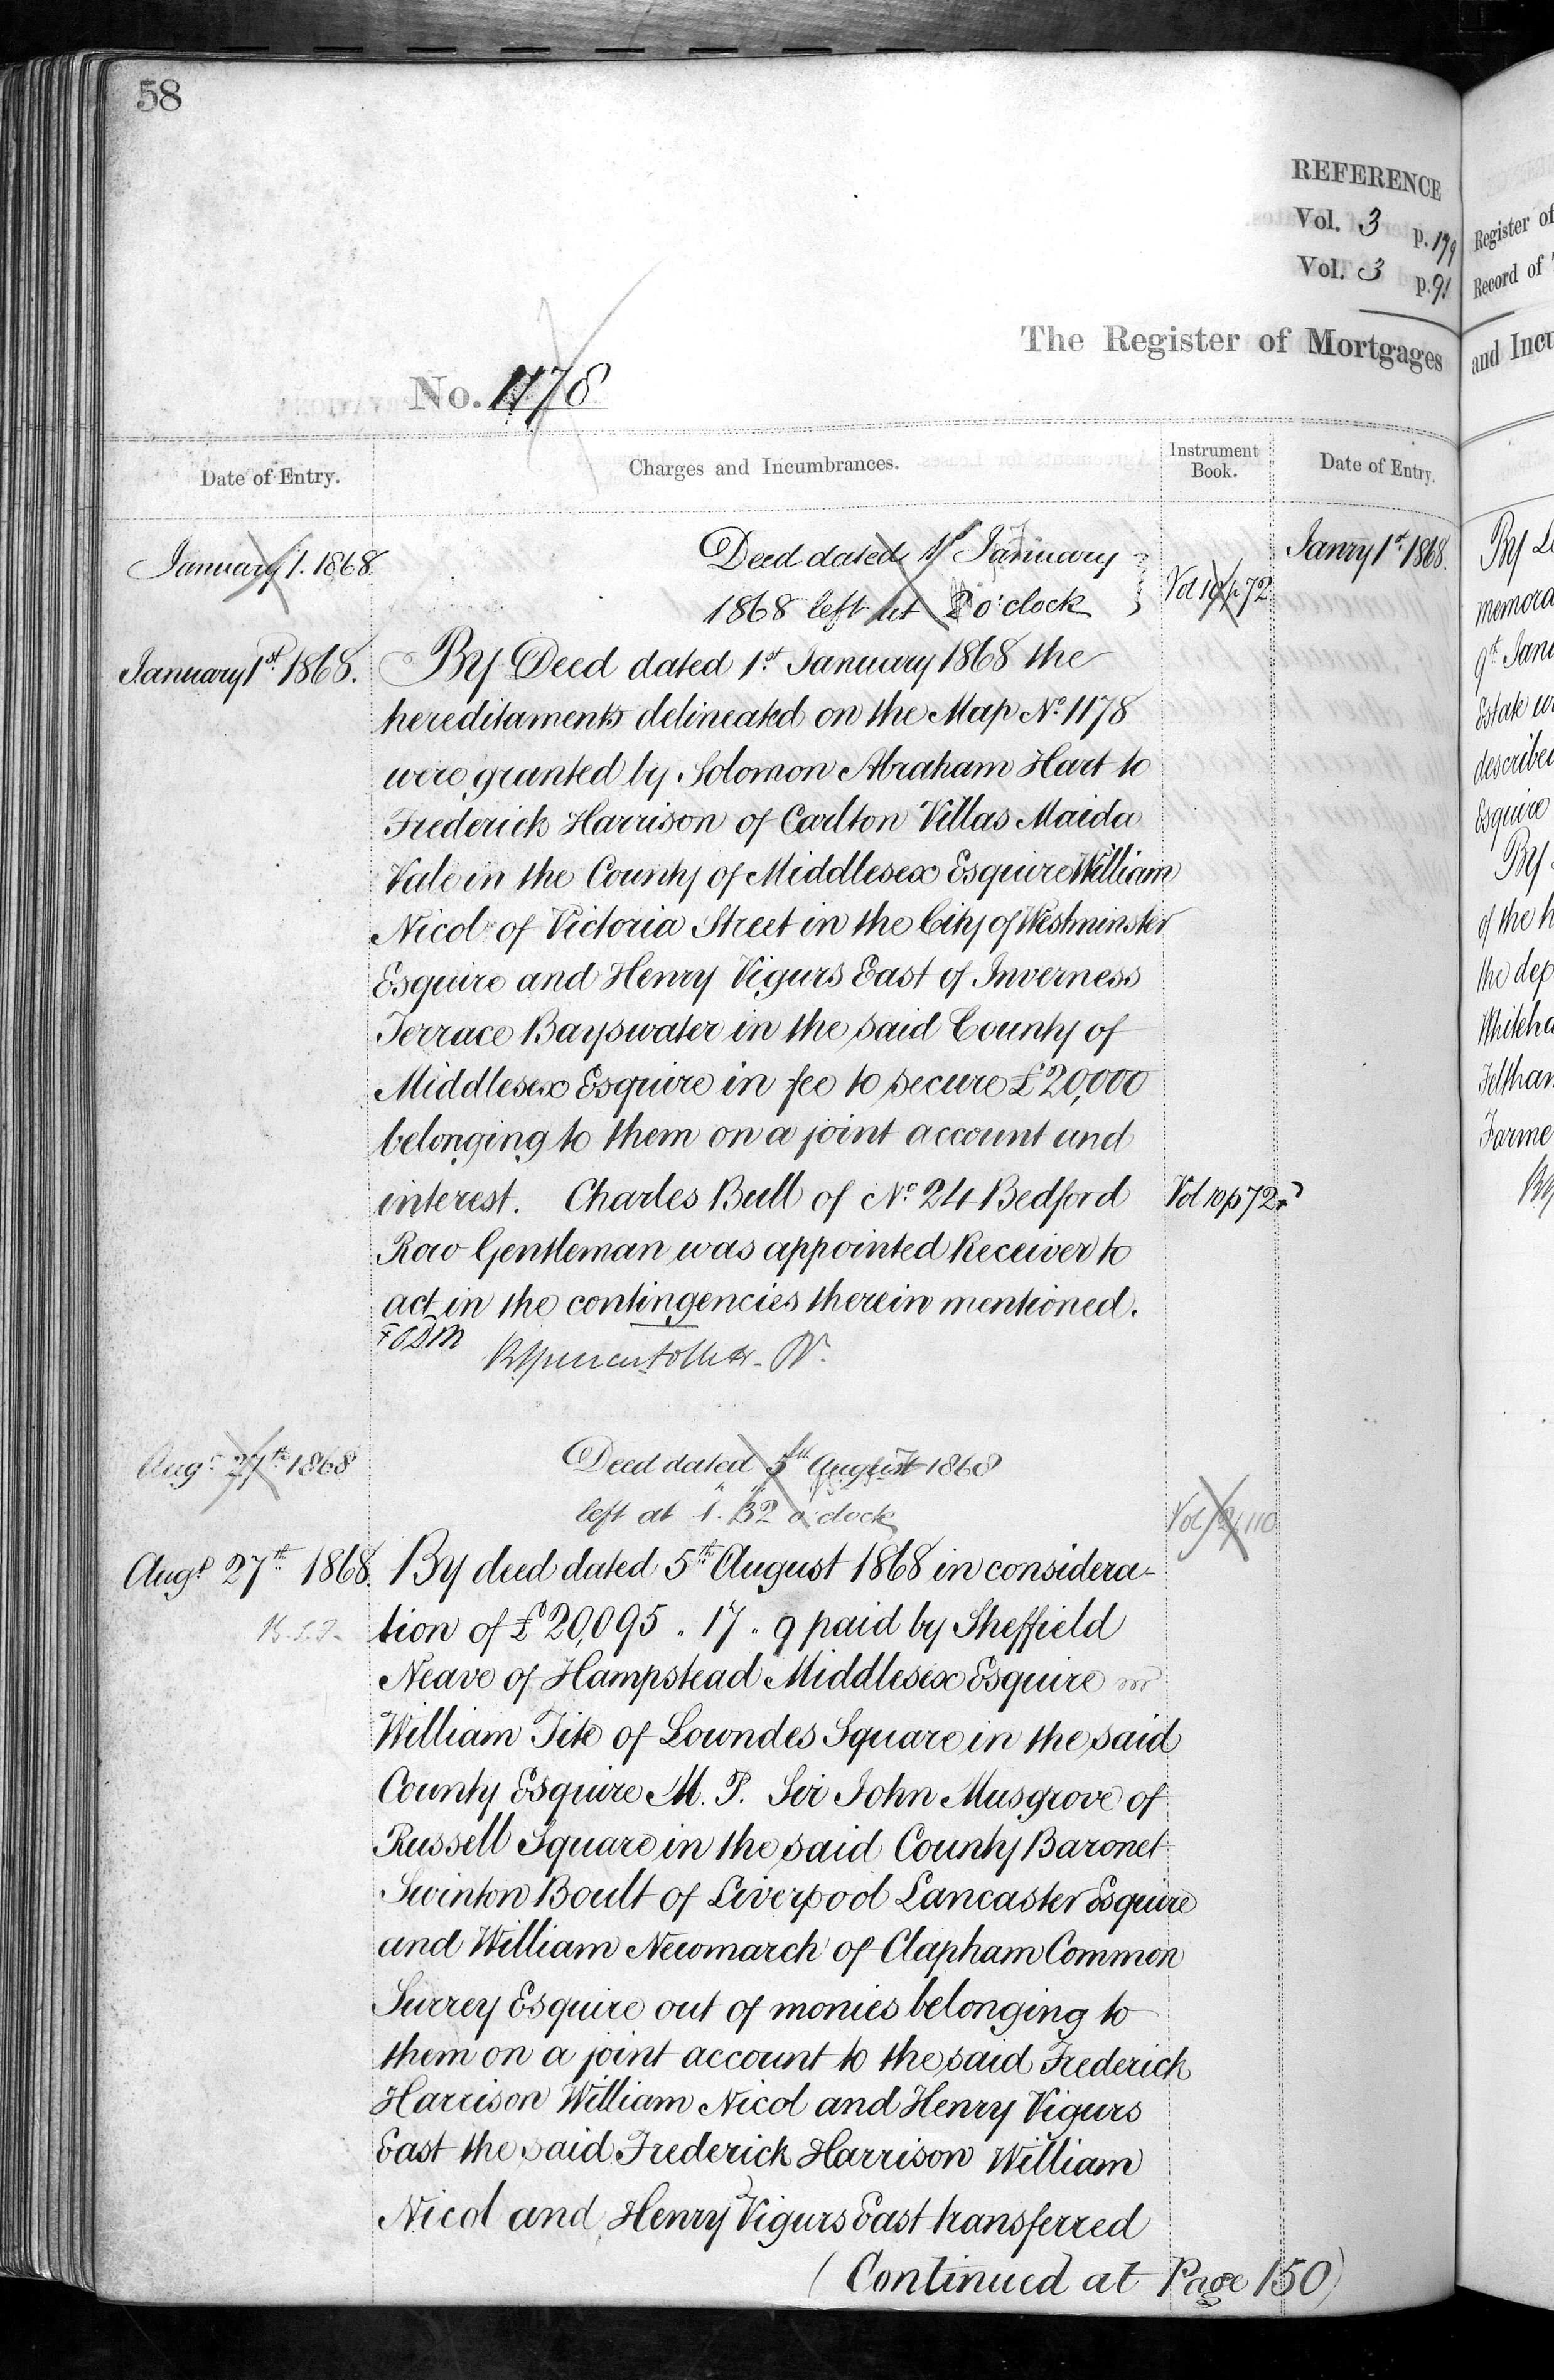 58
REFERENCE
Vol. 3 p. 179
Vol. 3 p. 91
Register of
Record of
The Register of Mortgages
and Incu
No. 1178
Date of Entry.
Charges and Incumbrances.
Instrument Book.
Date of Entry.
January 1. 1868
Deed dated 1st January
1868 left at 2 o'clock
Vol 10 p 72
Janry 1st 1868.
January 1st 1868.
By Deed dated 1st January 1868 the
hereditaments delineated on the Map No. 1178
were granted by Solomon Abraham Hart to
Frederick Harrison of Carlton Villas Maida
Vale in the County of Middlesex Esquire William
Nicol of Victoria Street in the City of Westminster
Esquire and Henry Vigurs East of Inverness
Terrace Bayswater in the said County of
Middlesex Esquire in fee to secure £20,000
belonging to them on a joint account and
interest. Charles Bull of No. 24 Bedford
Vol 10 p 72
Row Gentleman was appointed Receiver to
act in the contingencies therein mentioned.
Augt 27th 1868
Deed dated 5th August 1868
left at 1. 32 o'clock
110
Augt 27th 1868.
By deed dated 5th August 1868 in considera-
tion of £20,095 " 17 " 9 paid by Sheffield
Neave of Hampstead Middlesex Esquire
William Tite of Lowndes Square in the said
County Esquire M. P. Sir John Musgrove of
Russell Square in the said County Baronet
Swinton Boult of Liverpool Lancaster Esquire
and William Newmarch of Clapham Common
Surrey Esquire out of monies belonging to
them on a joint account to the said Frederick
Harrison William Nicol and Henry Vigurs
East the said Frederick Harrison William
Nicol and Henry Vigurs East transferred
(Continued at Page 150)
By
memora
9th Janu
Estate
describe
Esquire
By
of the h
the dep
Whiteha
Feltham
Farme